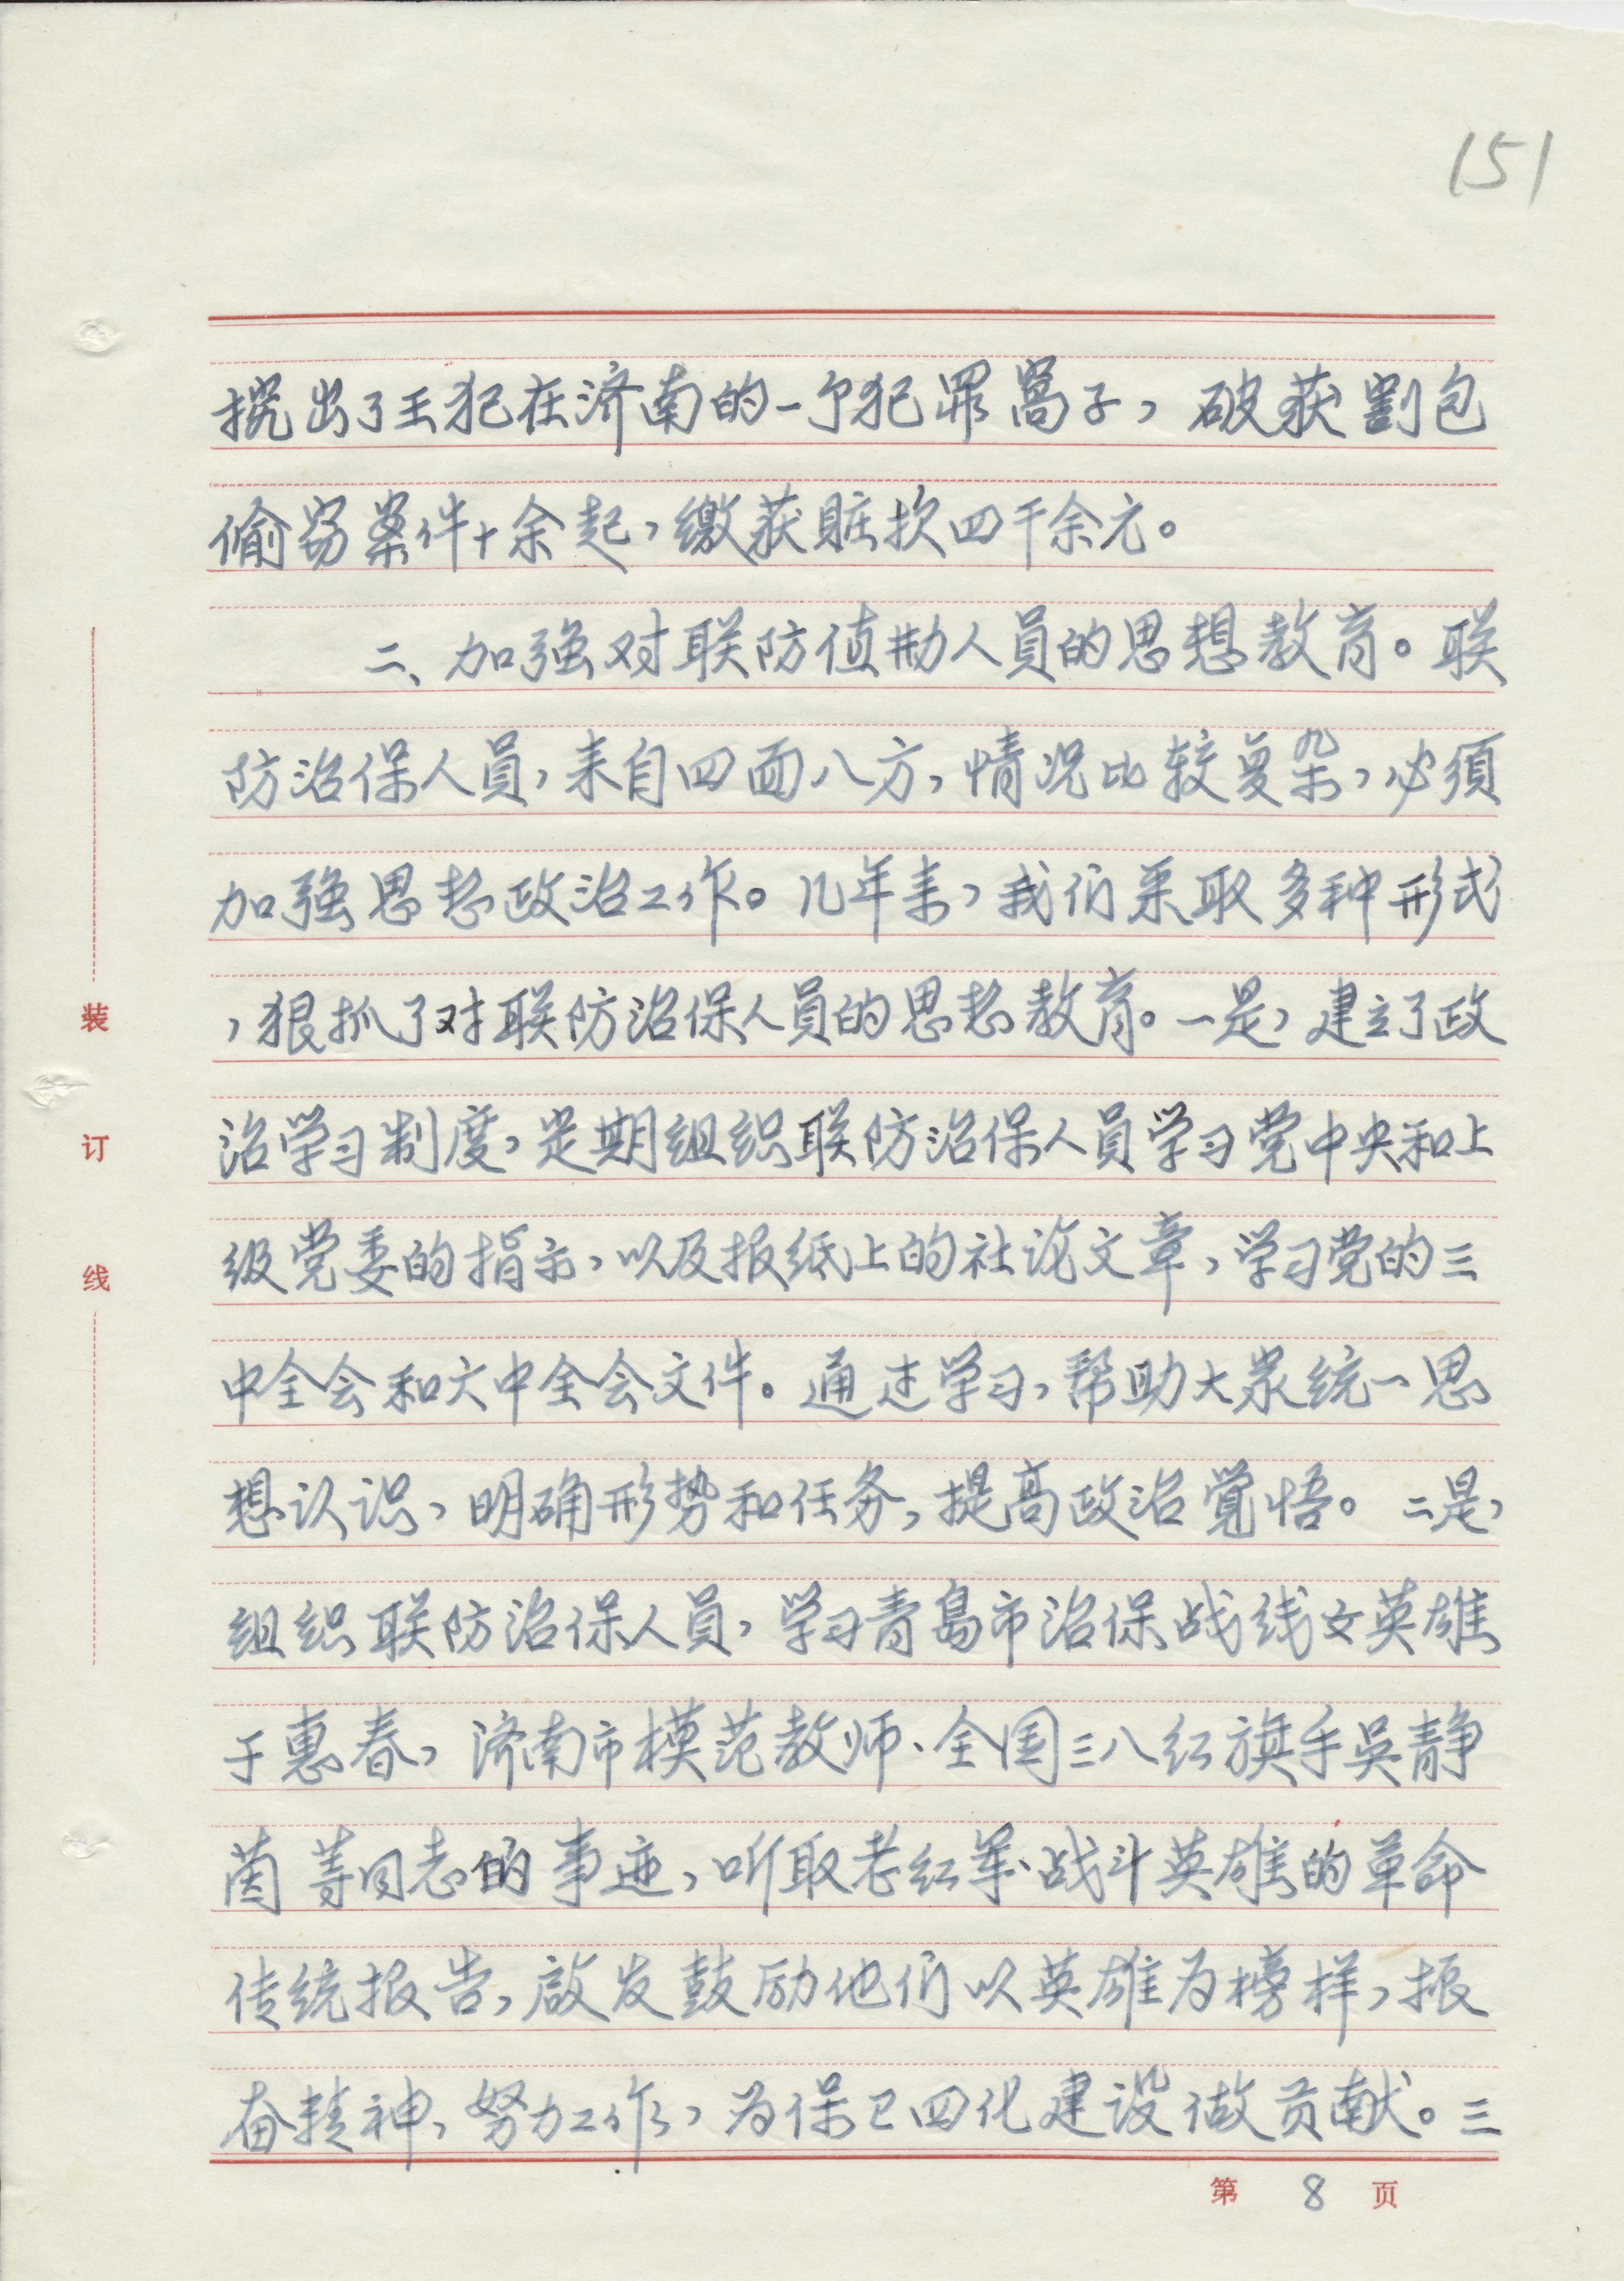 151
搅出了王犯在济南的一个犯罪窝子，破获割包
偷窃案件十余起，缴获赃款四千余元。
二、加强对联防值勤人员的思想教育。联
防治保人员，来自四面八方，情况比较复杂，必须
加强思想政治工作。几年来，我们采取多种形式
，狠抓了对联防治保人员的思想教育。一是，建立了政
治学习制度，定期组织联防治保人员学习党中央和上
级党委的指示，以及报纸上的社论文章，学习党的三
中全会和六中全会文件。通过学习，帮助大家统一思
想认识，明确形势和任务，提高政治觉悟。二是，
组织联防治保人员，学习青岛市治保战线女英雄
于惠春，济南市模范教师、全国三八红旗手吴静
茵等同志的事迹，听取老红军、战斗英雄的革命
传统报告，启发鼓励他们以英雄为榜样，振
奋精神，努力工作，为保卫四化建设做贡献。三
装
订
线
第 8 页